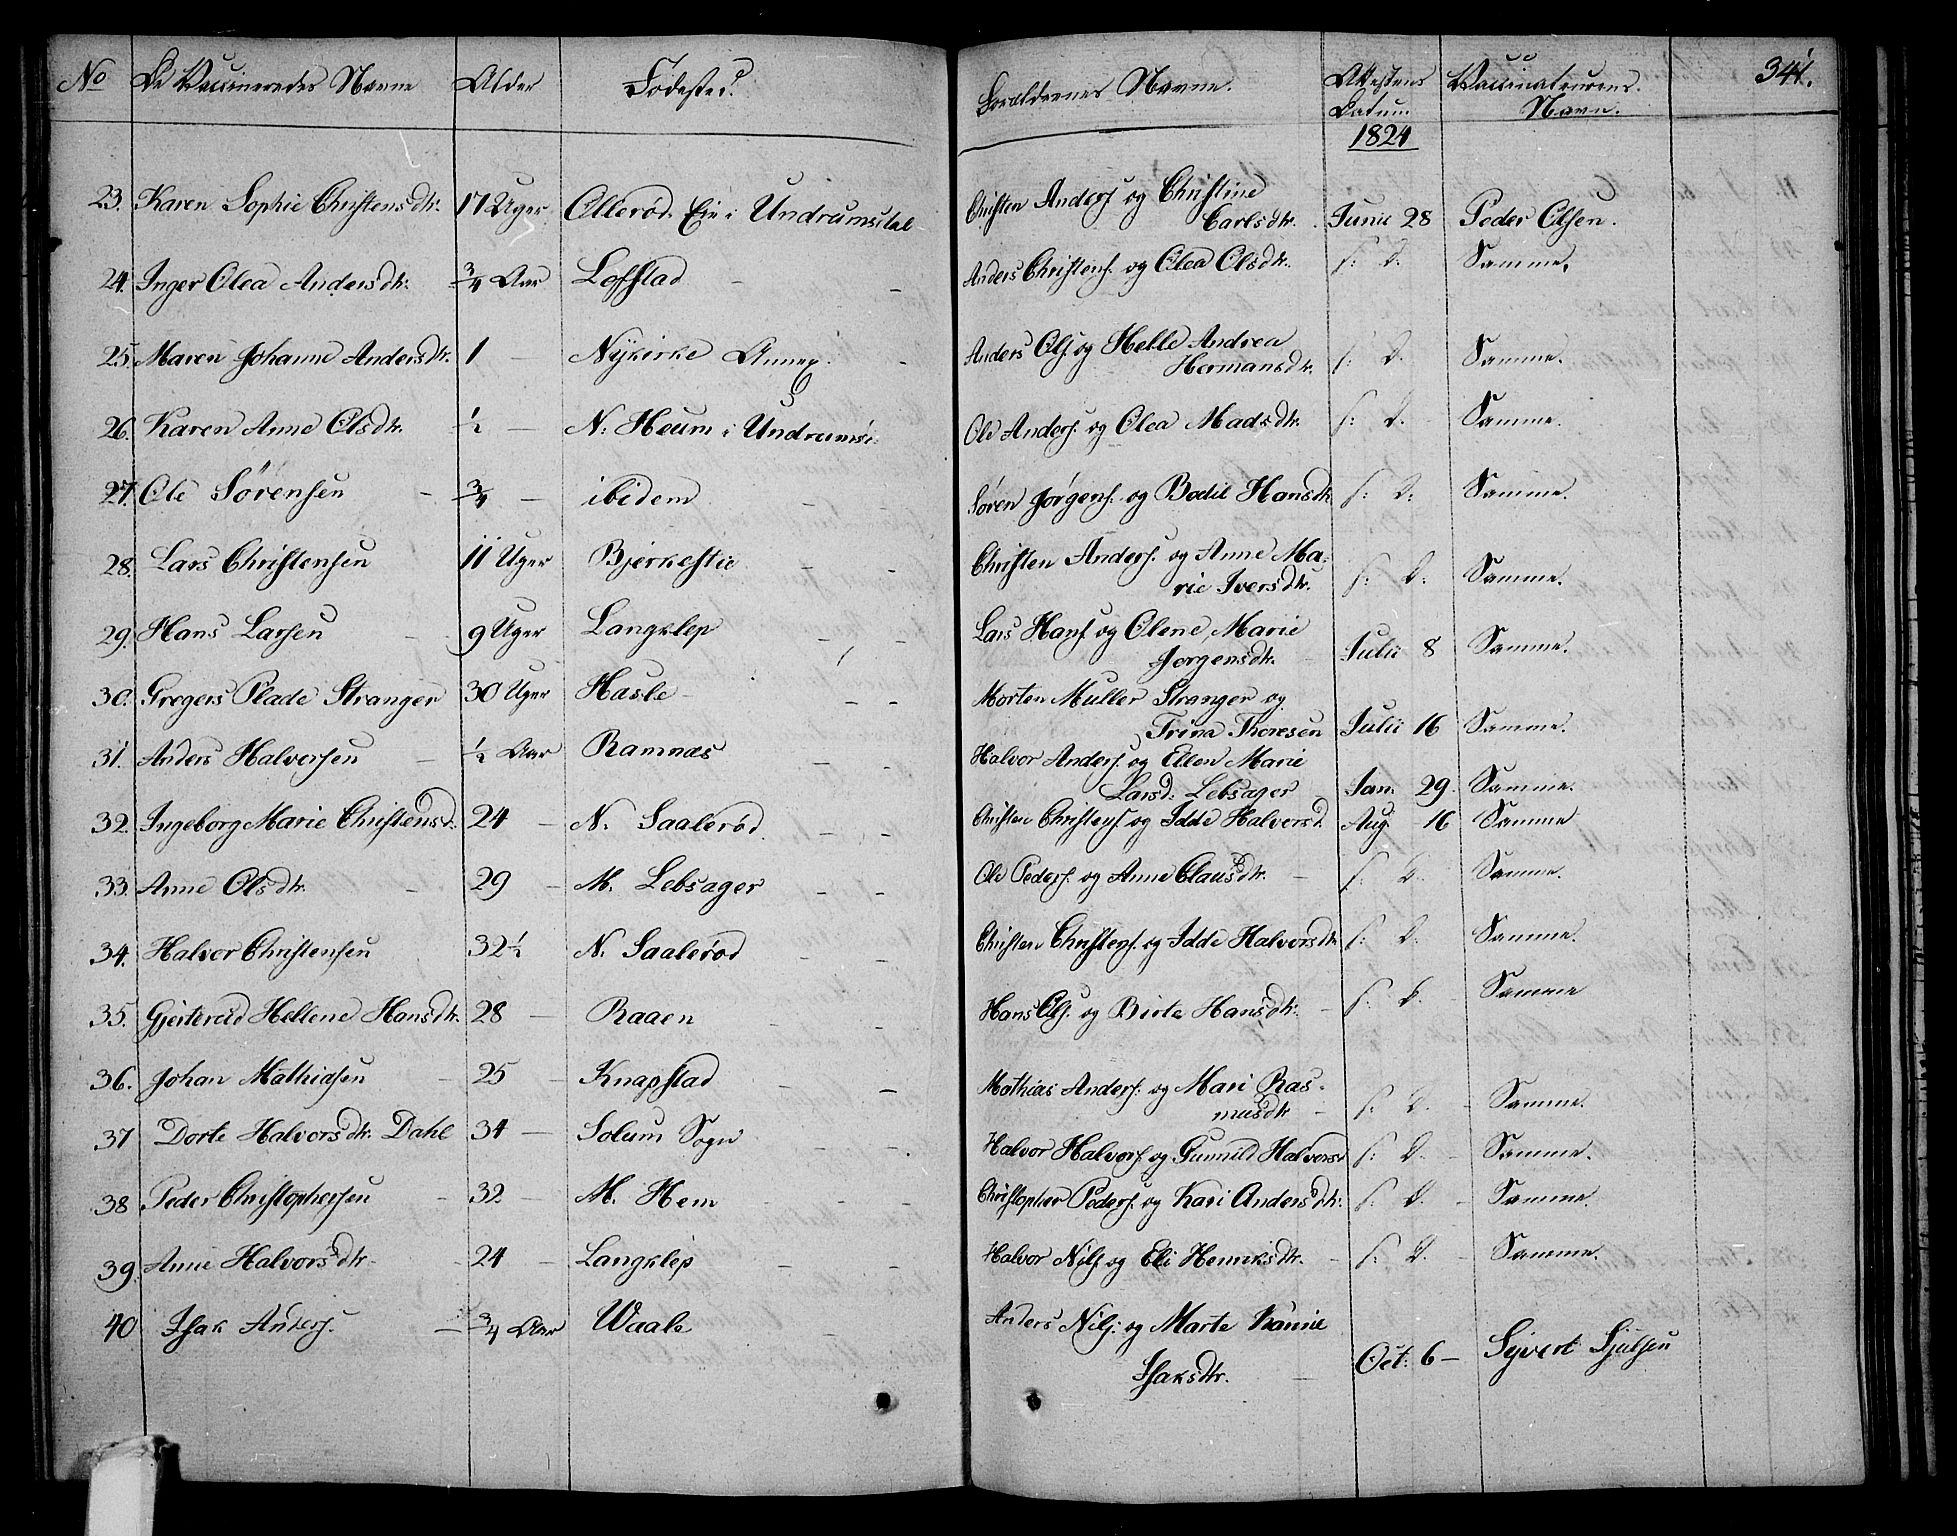 No De Vaccineredes Navne Alder Fødested. Foreldrenes Navne. Attestens Datum Vaccinateurens Navn. 341.
1824
23. Karen Sophie Christensdtr. 17 Uger Ollerød Eie i Undrumsdal Christen Anders. og Christine
Carlsdtr. Junii 28 Peder Olsen.
24. Inger Olea Andersdtr. 3/4 Aar Lofstad - - Anders Christens. og Olea Olsdtr. s: D. Samme.
25. Maren Johanne Andersdtr. 1 - Nykirke Annex. - Anders Ols. og Helle Andrea
Hermansdtr. s: D. Samme.
26. Karen Anne Olsdtr. 1/2 - N: Heum i Undrumsd: Ole Anders. og Olea Madsdtr. s: D. Samme.
27. Ole Sørensen - 3/4 - ibidem - - Søren Jørgens. og Bodil Hansdtr s: D: Samme.
28. Lars Christensen 11 Uger Bjerkestie - - Christen Anders. og Anne Ma-
rie Iversdtr. s: D: Samme.
29. Hans Larsen - 9 Uger Langklep - - Lars Hans. og Olene Marie
Jorgensdtr. - Julii 8 Samme.
30. Gregers Plade Stranger 30 Uger Hasle - - - Morten Muller Stranger og
Trina Thoresen Julii 16 Samme.
31. Anders Halversen - 1/2 Aar Ramnæs - - Halvor Anders. og Ellen Marie
Larsd: Lebsager Jan. 29. Samme.
32. Ingeborg Marie Christensd. 24 - N. Saalerød - - Christen Christens. og Idde Halversd. Aug. 16 Samme
33. Anne Olsdtr. - 29 - M. Lebsager - - Ole Peders. og Anne Clausdtr. - s: D. Samme.
34. Halvor Christensen 32 1/2 N. Saalerød - - Christen Christens. og Idde Halversdtr s: D. Samme.
35. Gjertrud Hellene Hansdtr. 28 - Raaen - - Hans Ols. og Birte Hansdtr. - s: D. Samme
36. Johan Mathiasen - 25 - Knapstad - - Mathias Anders. og Mari Ras-
musdtr - s: D. - Samme.
37 Dorte Halvorsdtr. Dahl 34 - Solum Sogn - - Halvor Halvors. og Gunnild Halvorsd s: D. - Samme.
38 Peder Christophersen - 32 - M. Hem - - Christopher Peders. og Kari Andersdtr. s: D. - Samme.
39. Anne Halvorsdtr. - 24 - Langklep - - Halvor Nils. og Eli Henriksdtr. - s: D. - Samme.
40 Isak Anders. - 3/4 Aar Waale - Anders Nils. og Marte Karine
Isaksdtr. - Oct: 6 - Syvert Sjulsen